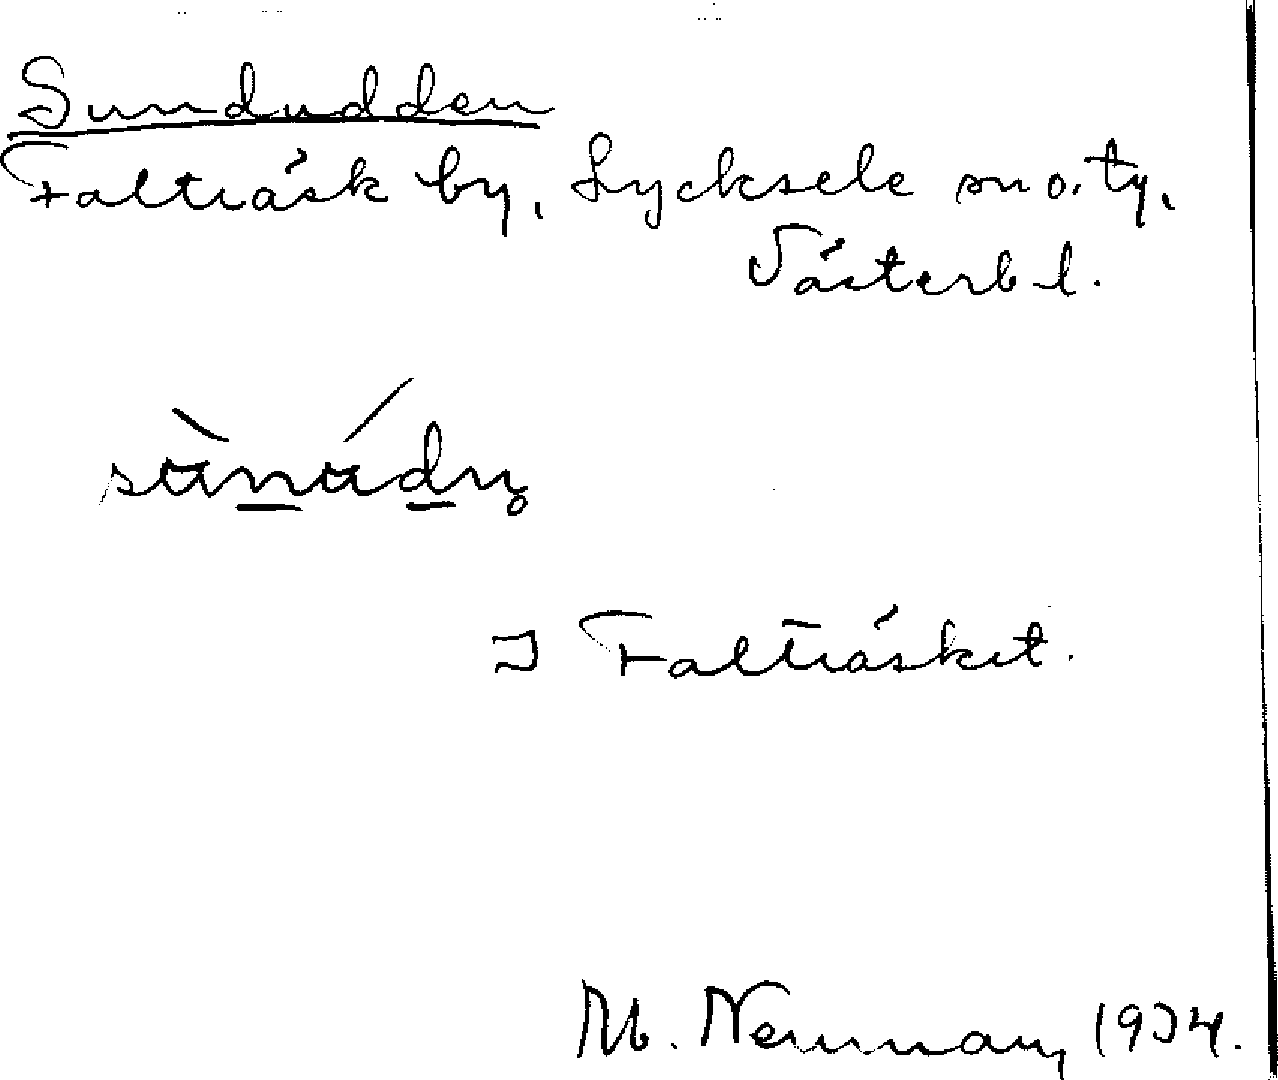 Sundudden
Falträsk by, Lycksele sn o. ty,
Västerb l.
I Falträsket.
M. Neuman, 1934.